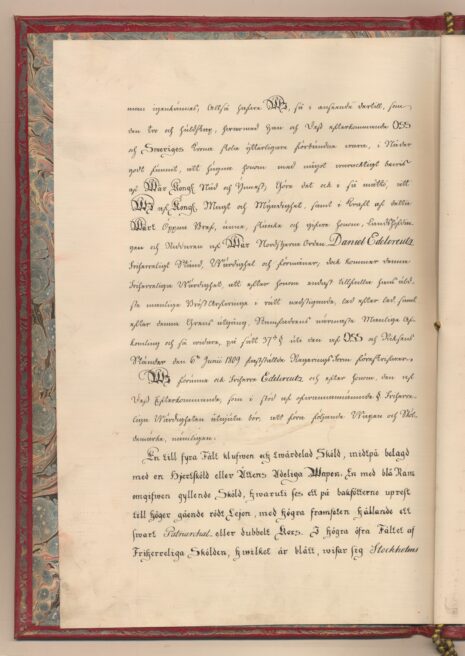 man igenkännas; Altså hafve Wi, så i anseende dertill, som
den tro och huldskap, hvarmed Han och Dess efterkommande OSS
och Sweriges Crona skola ytterligare förbindas vara, i Nåder
godt funnit, att hugna honom med något varachtigt bevis
af Wår Kongl. Nåd och Ynnest; Göre det ock i så måtto, att
Wi af Kongl. Magt och Myndighet, samt i kraft af detta
Wårt Öppna Bref, unne, skänke och gifve honom, Landshöfdin-
gen och Riddaren af Wår Nordstjerne Orden Daniel Edelcreutz
Friherreligt Stånd, Wärdighet och förmåner, dock kommer denna
Friherreliga Wärdighet, att efter honom endast tillfalla hans äld-
ste manliga Bröst Arfvinge i rätt nedstigande led efter led samt
efter denna Grens utgång, Stamfadrens närmaste Manliga Af-
komling och så vidare, på sätt 37de § uti den af OSS och Riksens
Ständer den 6te Junii 1809 fastställde Regerings-Form föreskrifver.
Wi förunna ock Friherre Edelcreutz och efter honom, den af
Dess Efterkommande, som i stöd af ofvannämnde § Friherre-
liga Wärdigheten åtnjuta bör, att föra följande Wapen och Sköl-
demärke, nämligen:
En till fyra Fält klufwen och twärdelad Sköld, midtpå belagd
med en Hjertsköld eller Ättens Adeliga Wapen, En med blå Ram
omgifwen gyllende Sköld, hwaruti ses ett på bakfötterne uprest
till höger gående rödt Lejon, med högra framfoten hållande ett
swart Patriarchal- eller dubbelt Kors. I högra öfra Fältet af
Friherreliga Skölden, hwilket är blått, wisar sig Stockholms